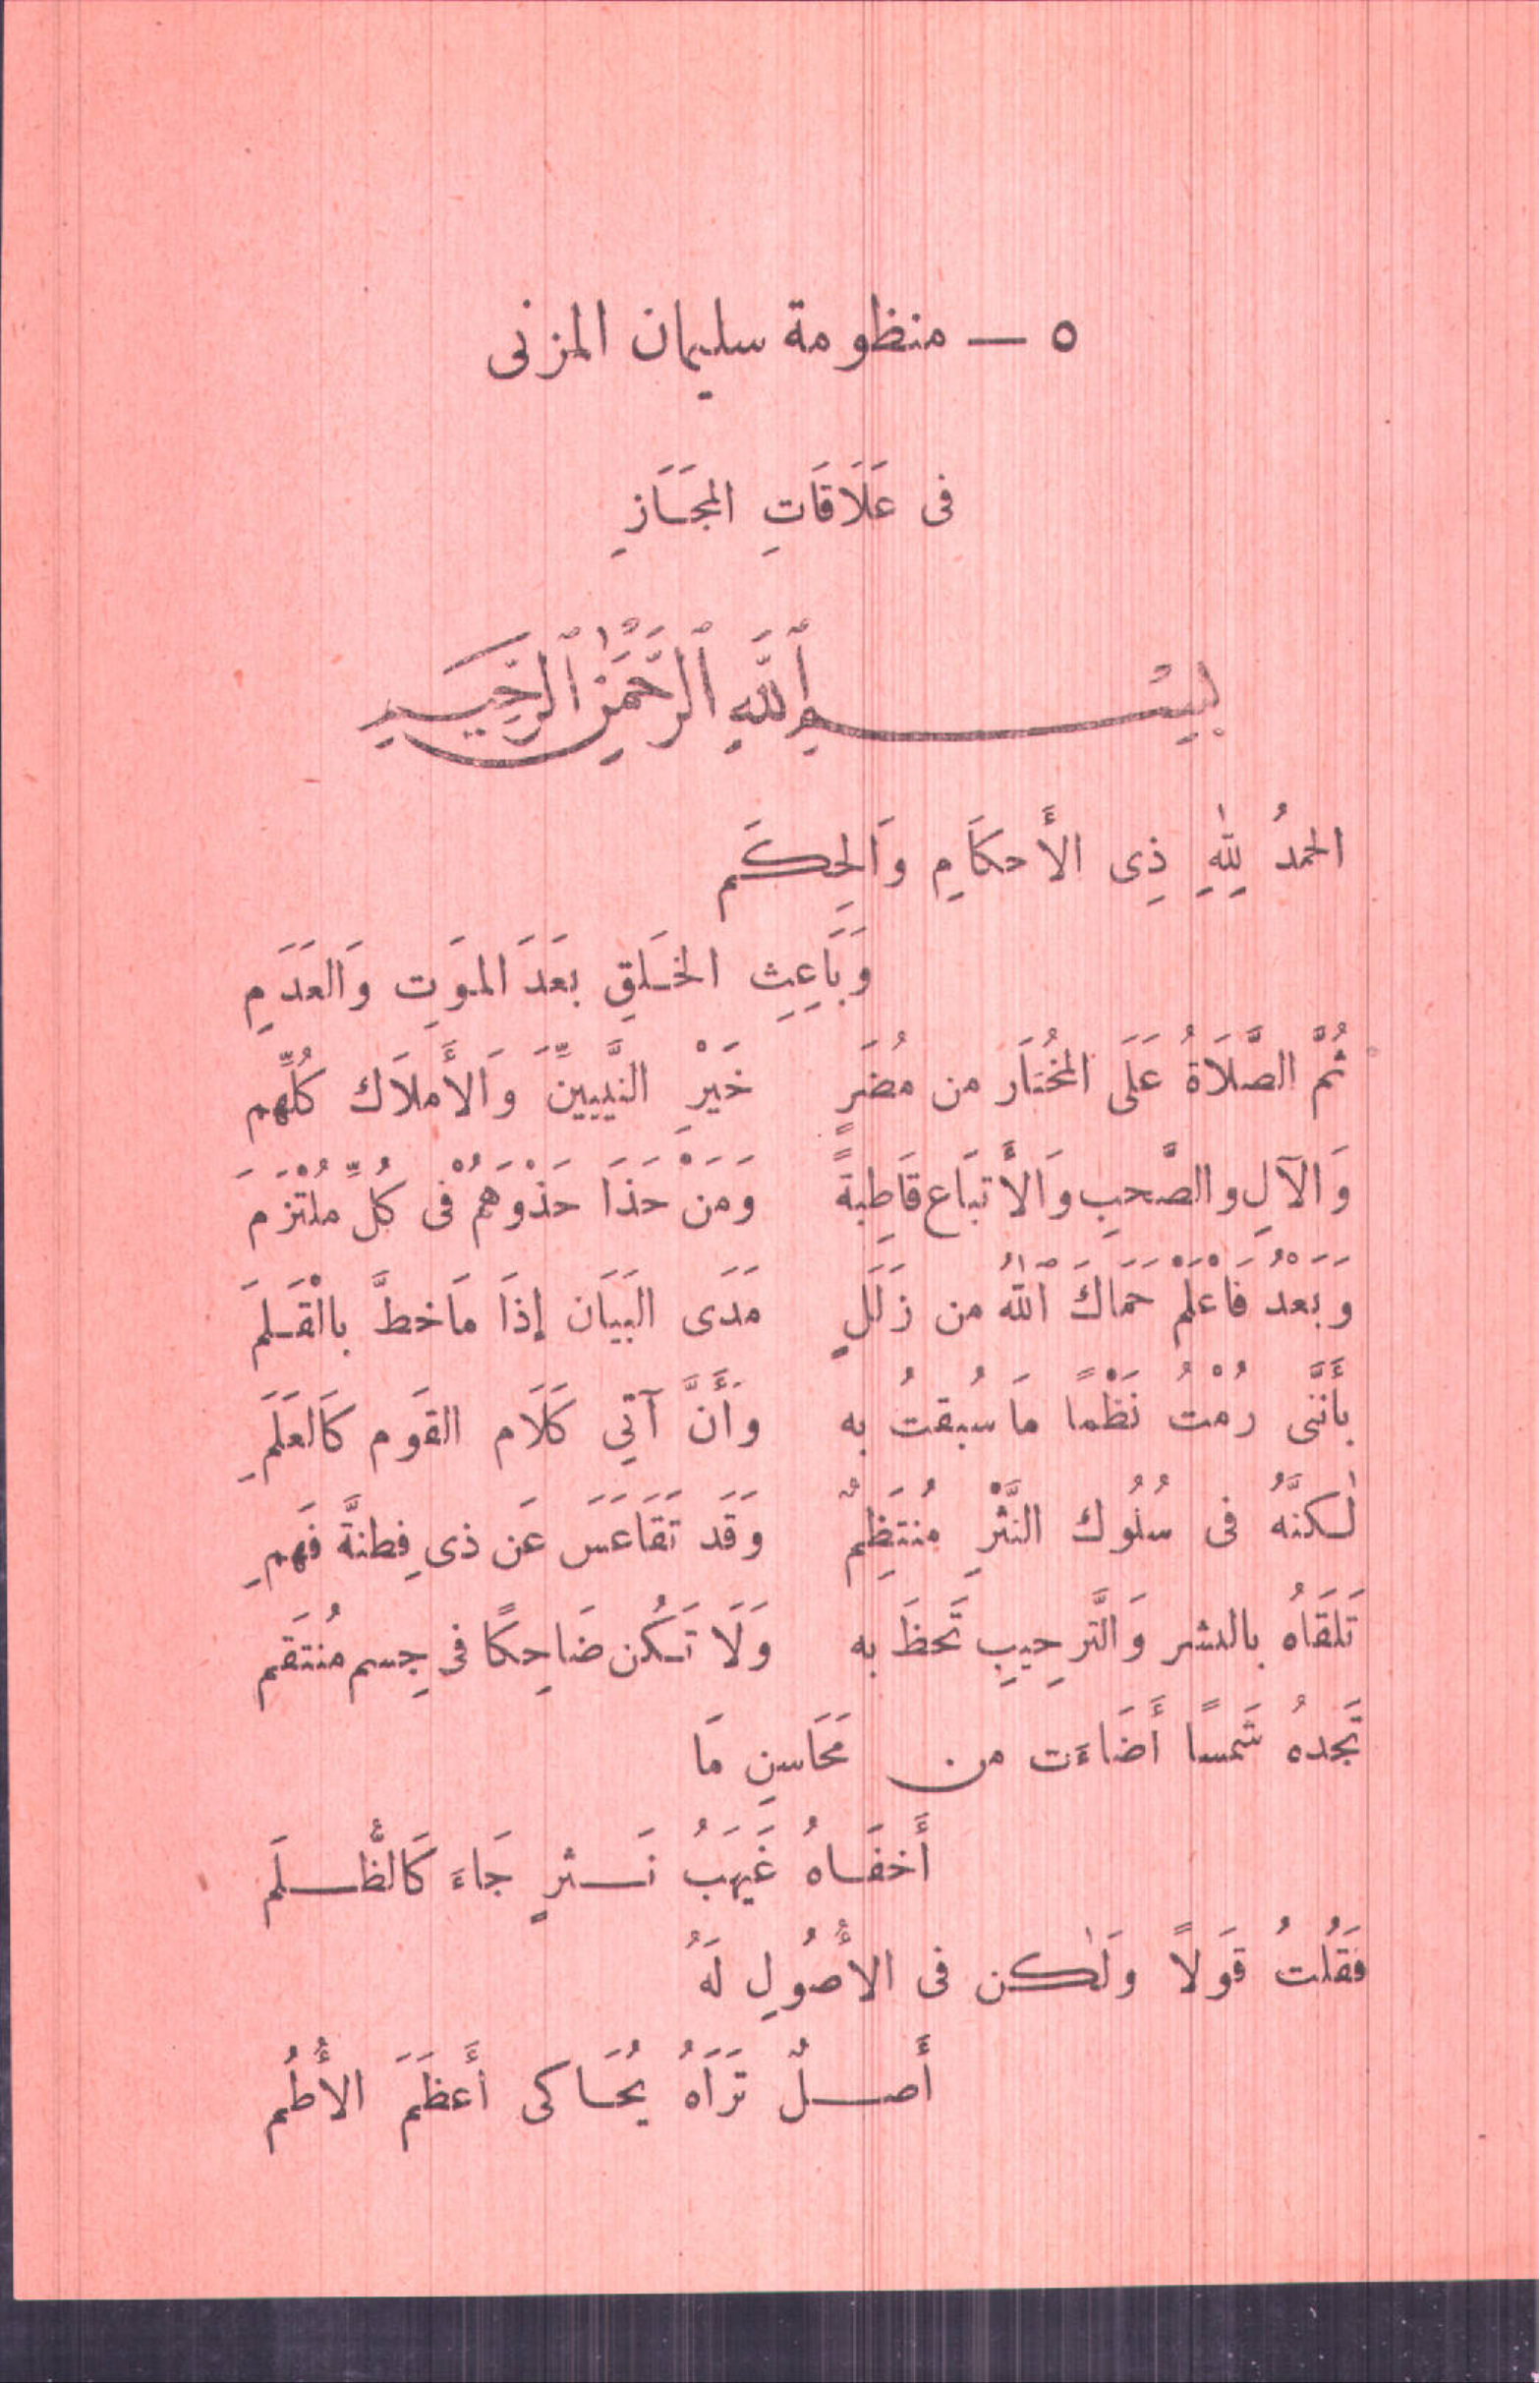 ٥ — منظومة سليمان المزنى
فى عَلَاقَاتِ المجَازِ
بِسْمِ ٱللَّهِ ٱلرَّحْمَٰنِ ٱلرَّحِيمِ
الحمدُ للهِ ذِى الأَحكَامِ وَالحِكَم
وَبَاعِثِ الخَلقِ بَعَدَ المَوتِ وَالعَدَمِ
ثُمَّ الصَّلَاةُ عَلَى المخُتَار من مُضَرٍ خَيْرِ النَّبِيِّينَ وَالأَملَاك كُلِّهم
وَالآلِ والصَّحبِ وَالأَتبَاع قَاطِبةً وَمَنْ حَذَا حَذْوَهُمْ فى كُلِّ مُلْتَزَم
وَبَعْدُ فَاعْلَمْ حَمَاكَ اللهُ من زَلَلٍ مَدَى البَيَان إذَا مَاخطَّ بالْقَلَم
بأَنَّنى رُمْتُ نَظْمًا مَا سُبقتُ به وَأَنَّ آتِي كَلَام القَوم كَالعَلَمِ
لٰكنَّهُ فى سُلُوك النَّثْرِ مُنتَظِمٌ وَقَد تَقَاعَسَ عَن ذى فِطنةَّ فَهمِ
تَلقَاهُ بالبشر وَالتَّرحِيبِ تَحظَ به وَلَا تَكُن ضَاحِكًا فى جِسم مُنتَقم
تَجدهُ شَمسًا أَضَاءَت من مَحَاسنِ مَا
أَخفَاهُ غَيهَبُ نَثرٍ جَاءَ كَالظُّلَم
فَقُلتُ قَولاً وَلٰكن فى الأُصُولِ لَهُ
أَصلٌ تَرَاهُ يُحَاكى أَعظَمَ الأُطُم